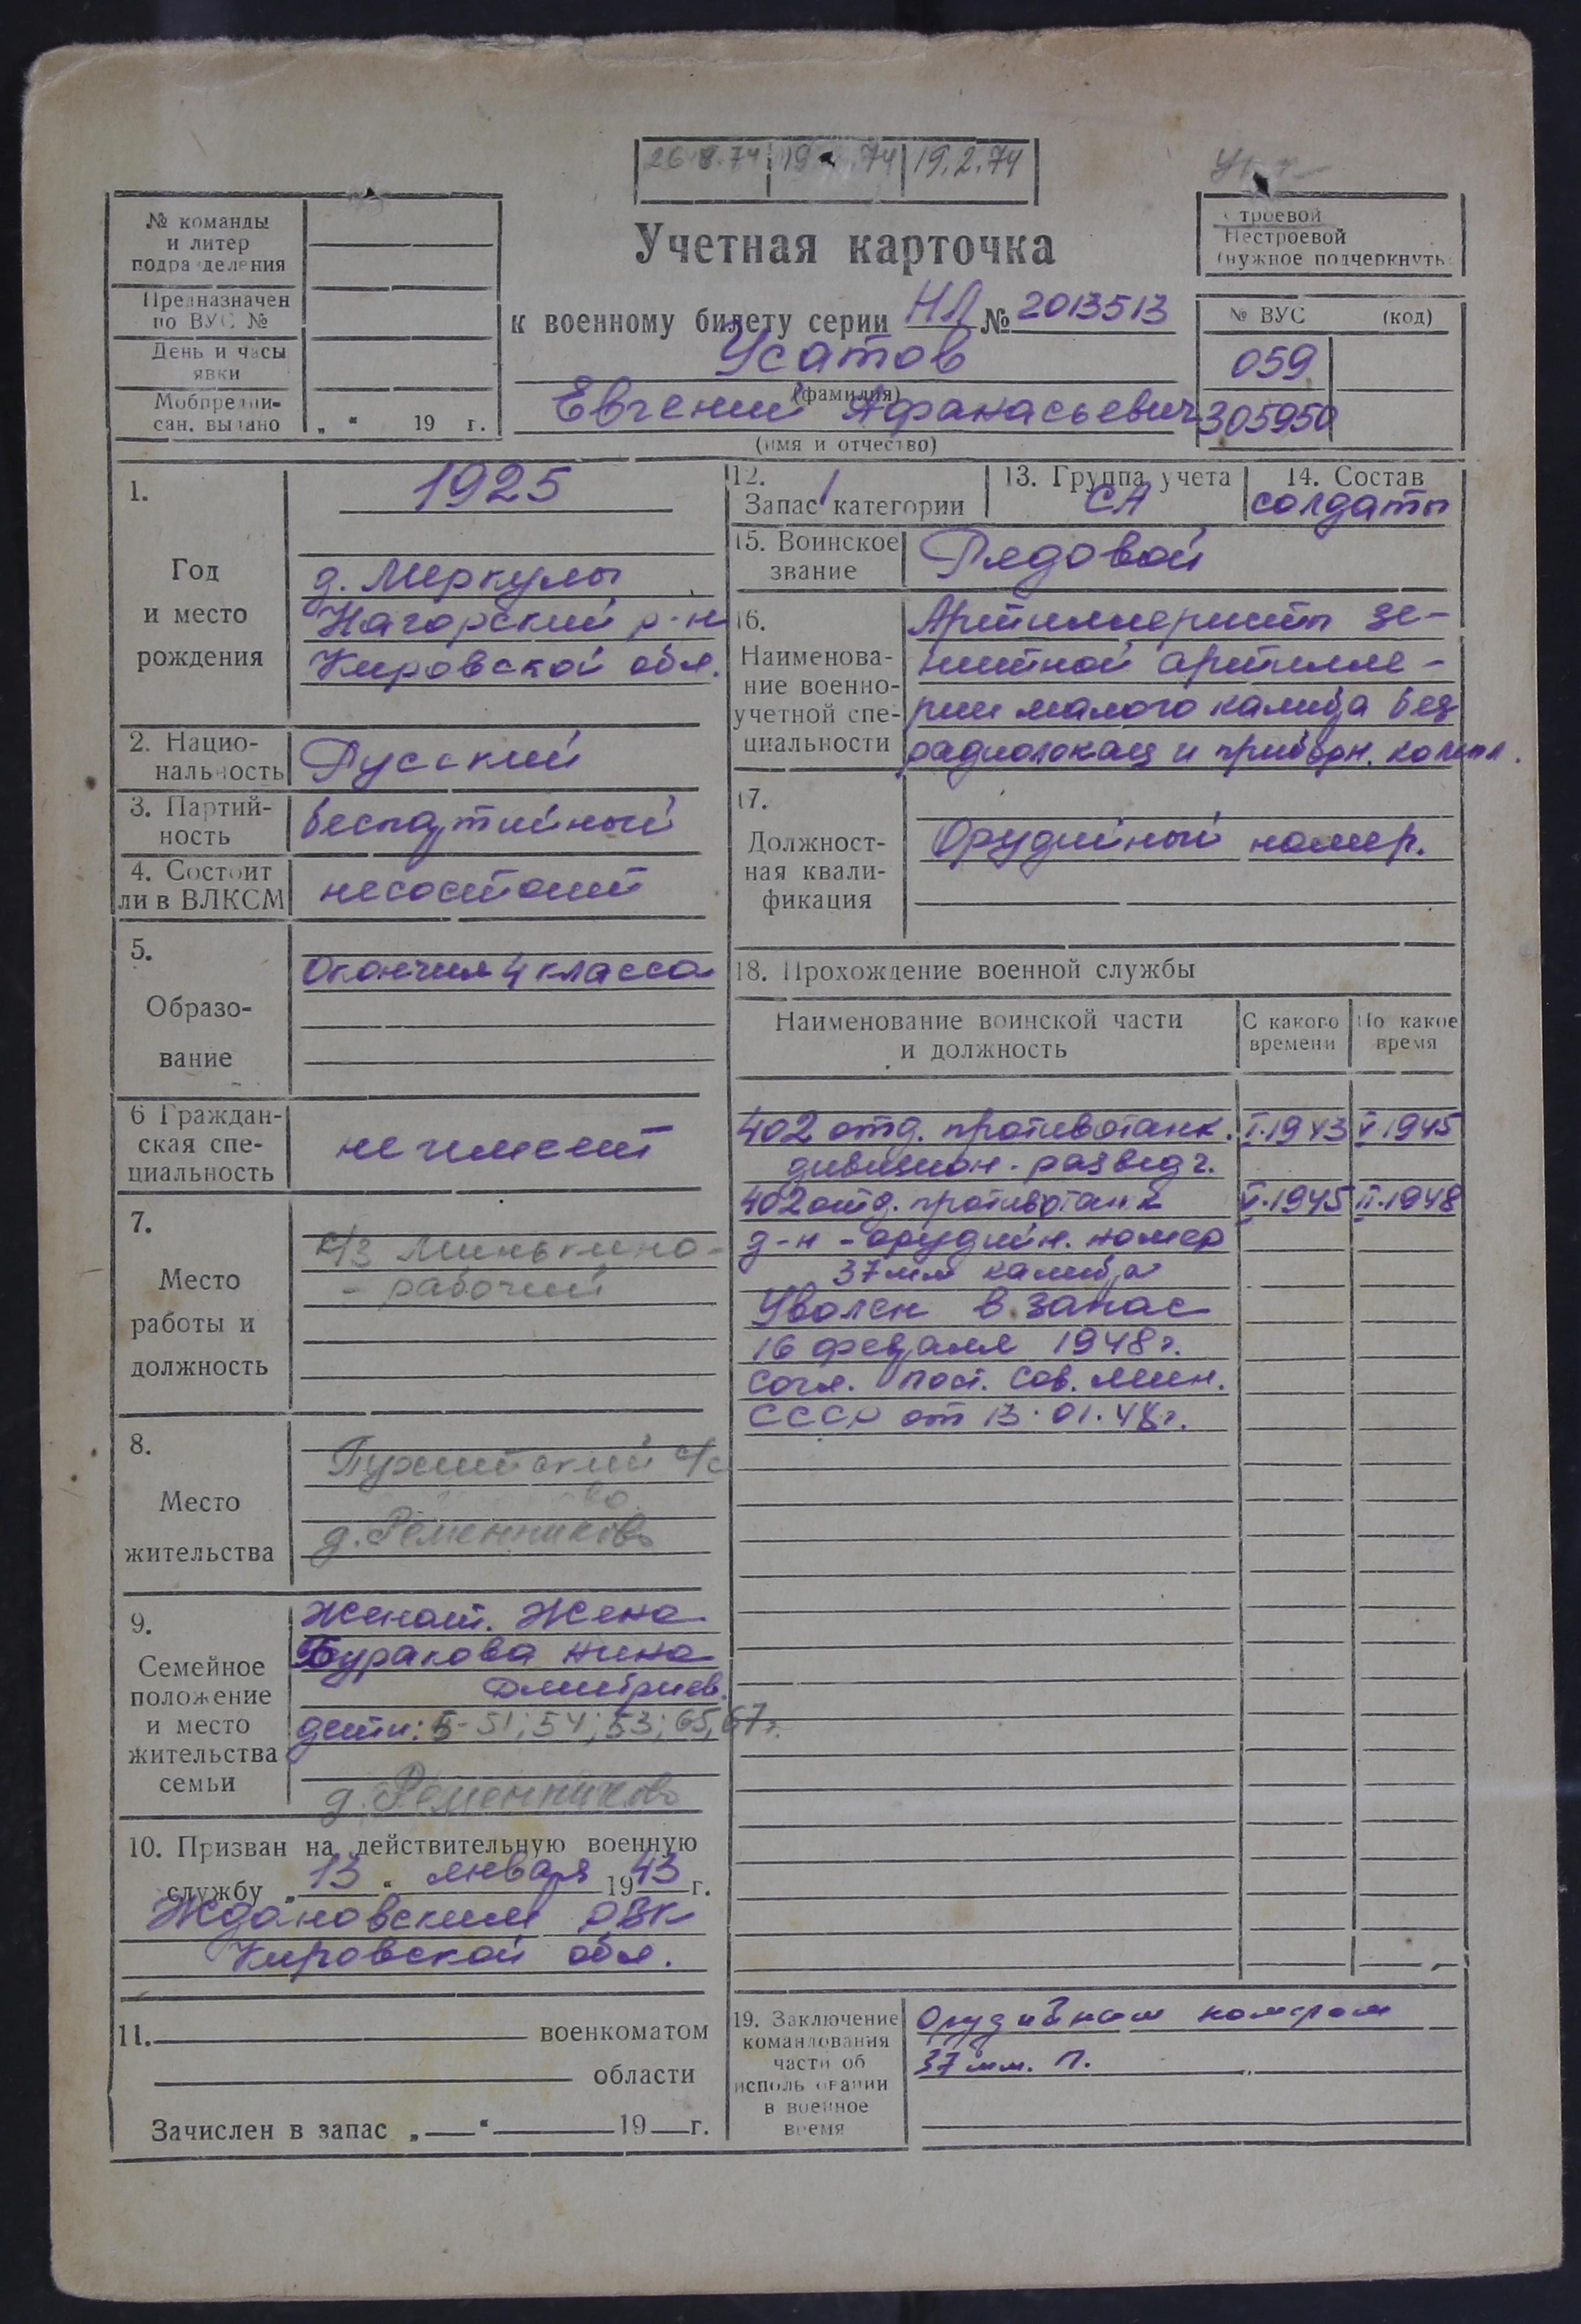 26.8.74 19 .74 19.2.74
№ команды
и литер
подразделения
Предназначен
по ВУС №
День и часы
явки
Мобпредпи-
сан. выдано „ “ 19 г.
Учетная карточка
к военному билету серии НЛ № 2013513
Усатов
(фамилия)
Евгений Афанасьевич
(имя и отчество)
Строевой
Нестроевой
(нужное подчеркнуть)
№ ВУС (код)
059
305950
1.
Год
и место
рождения
1925
д. Меркулы
Нагорский р-н
Кировской обл.
2. Нацио-
нальность
Русский
3. Партий-
ность
беспартийный
4. Состоит
ли в ВЛКСМ
несостоит
5.
Образо-
вание
Окончил 4 класса
6 Граждан-
ская спе-
циальность
не имеет
7.
Место
работы и
должность
с/з Минькино-
- рабочий
8.
Место
жительства
с/с
д. Ременниково
9.
Семейное
положение
и место
жительства
семьи
Женат. Жена
Буракова Нина
Дмитриев.
дети: 5-51; 54; 53; 65, 67г.
д. Ременниково
10. Призван на действительную военную
службу „ 13 “ января 1943 г.
Ждановским РВК
Кировской обл.
11. военкоматом
области
Зачислен в запас „ “ 19 г.
12.
Запас 1 категории
13. Группа учета
СА
14. Состав
солдаты
15. Воинское
звание
Рядовой
16.
Наименова-
ние военно-
учетной спе-
циальности
Артиллеристы зе-
нитной артилле-
рии малого калибра без
радиолокац и приборн. компл.
17.
Должност-
ная квали-
фикация
Орудийный номер.
18. Прохождение военной службы
Наименование воинской части
и должность
С какого
времени
По какое
время
402 отд. противотанк. I.1943 V.1945
дивизион - разведч.
402 отд. противотанк V.1945 II.1948
д-н - орудийн. номер
37 мм калибра
Уволен в запас
16 февраля 1948 г.
согл. пост. Сов. Мин.
СССР от 13.01.48г.
19. Заключение
командования
части об
использовании
в военное
время
Орудийным номером
37 мм. п.